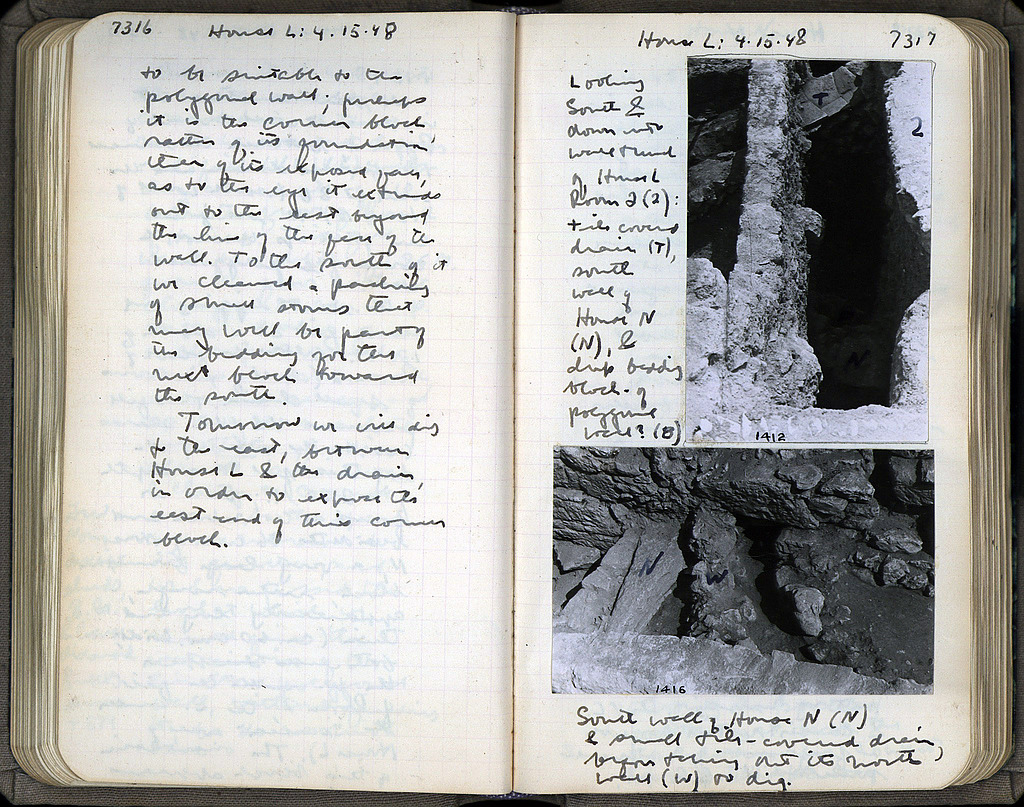 7316 House L: 4.15.48
to be suitable to the
polygonal wall; perhaps
it is the corner block
rather of its foundation
than of its exposed face,
as to the eye it extends
out to the east beyond
the line of the face of the
wall. To the south of it
we cleaned a packing
of small stones that
may well be part of
the bedding for the
next block toward
the south.
Tomorrow we will dig
to the east, between
House L & the drain,
in order to expose the
east end of this corner
block.
House L: 4.15.48 7317
Looking
South &
down into
of House L
Room 2 (2):
tile covered
drain (T),
south
wall of
House N
(N), &
drip bedding
block of
polygonal
wall? (B)
T
2
N
1412
N
W
1416
South wall of House N (N)
& small tile-covered drain,
before taking out its north
wall (W) to dig.